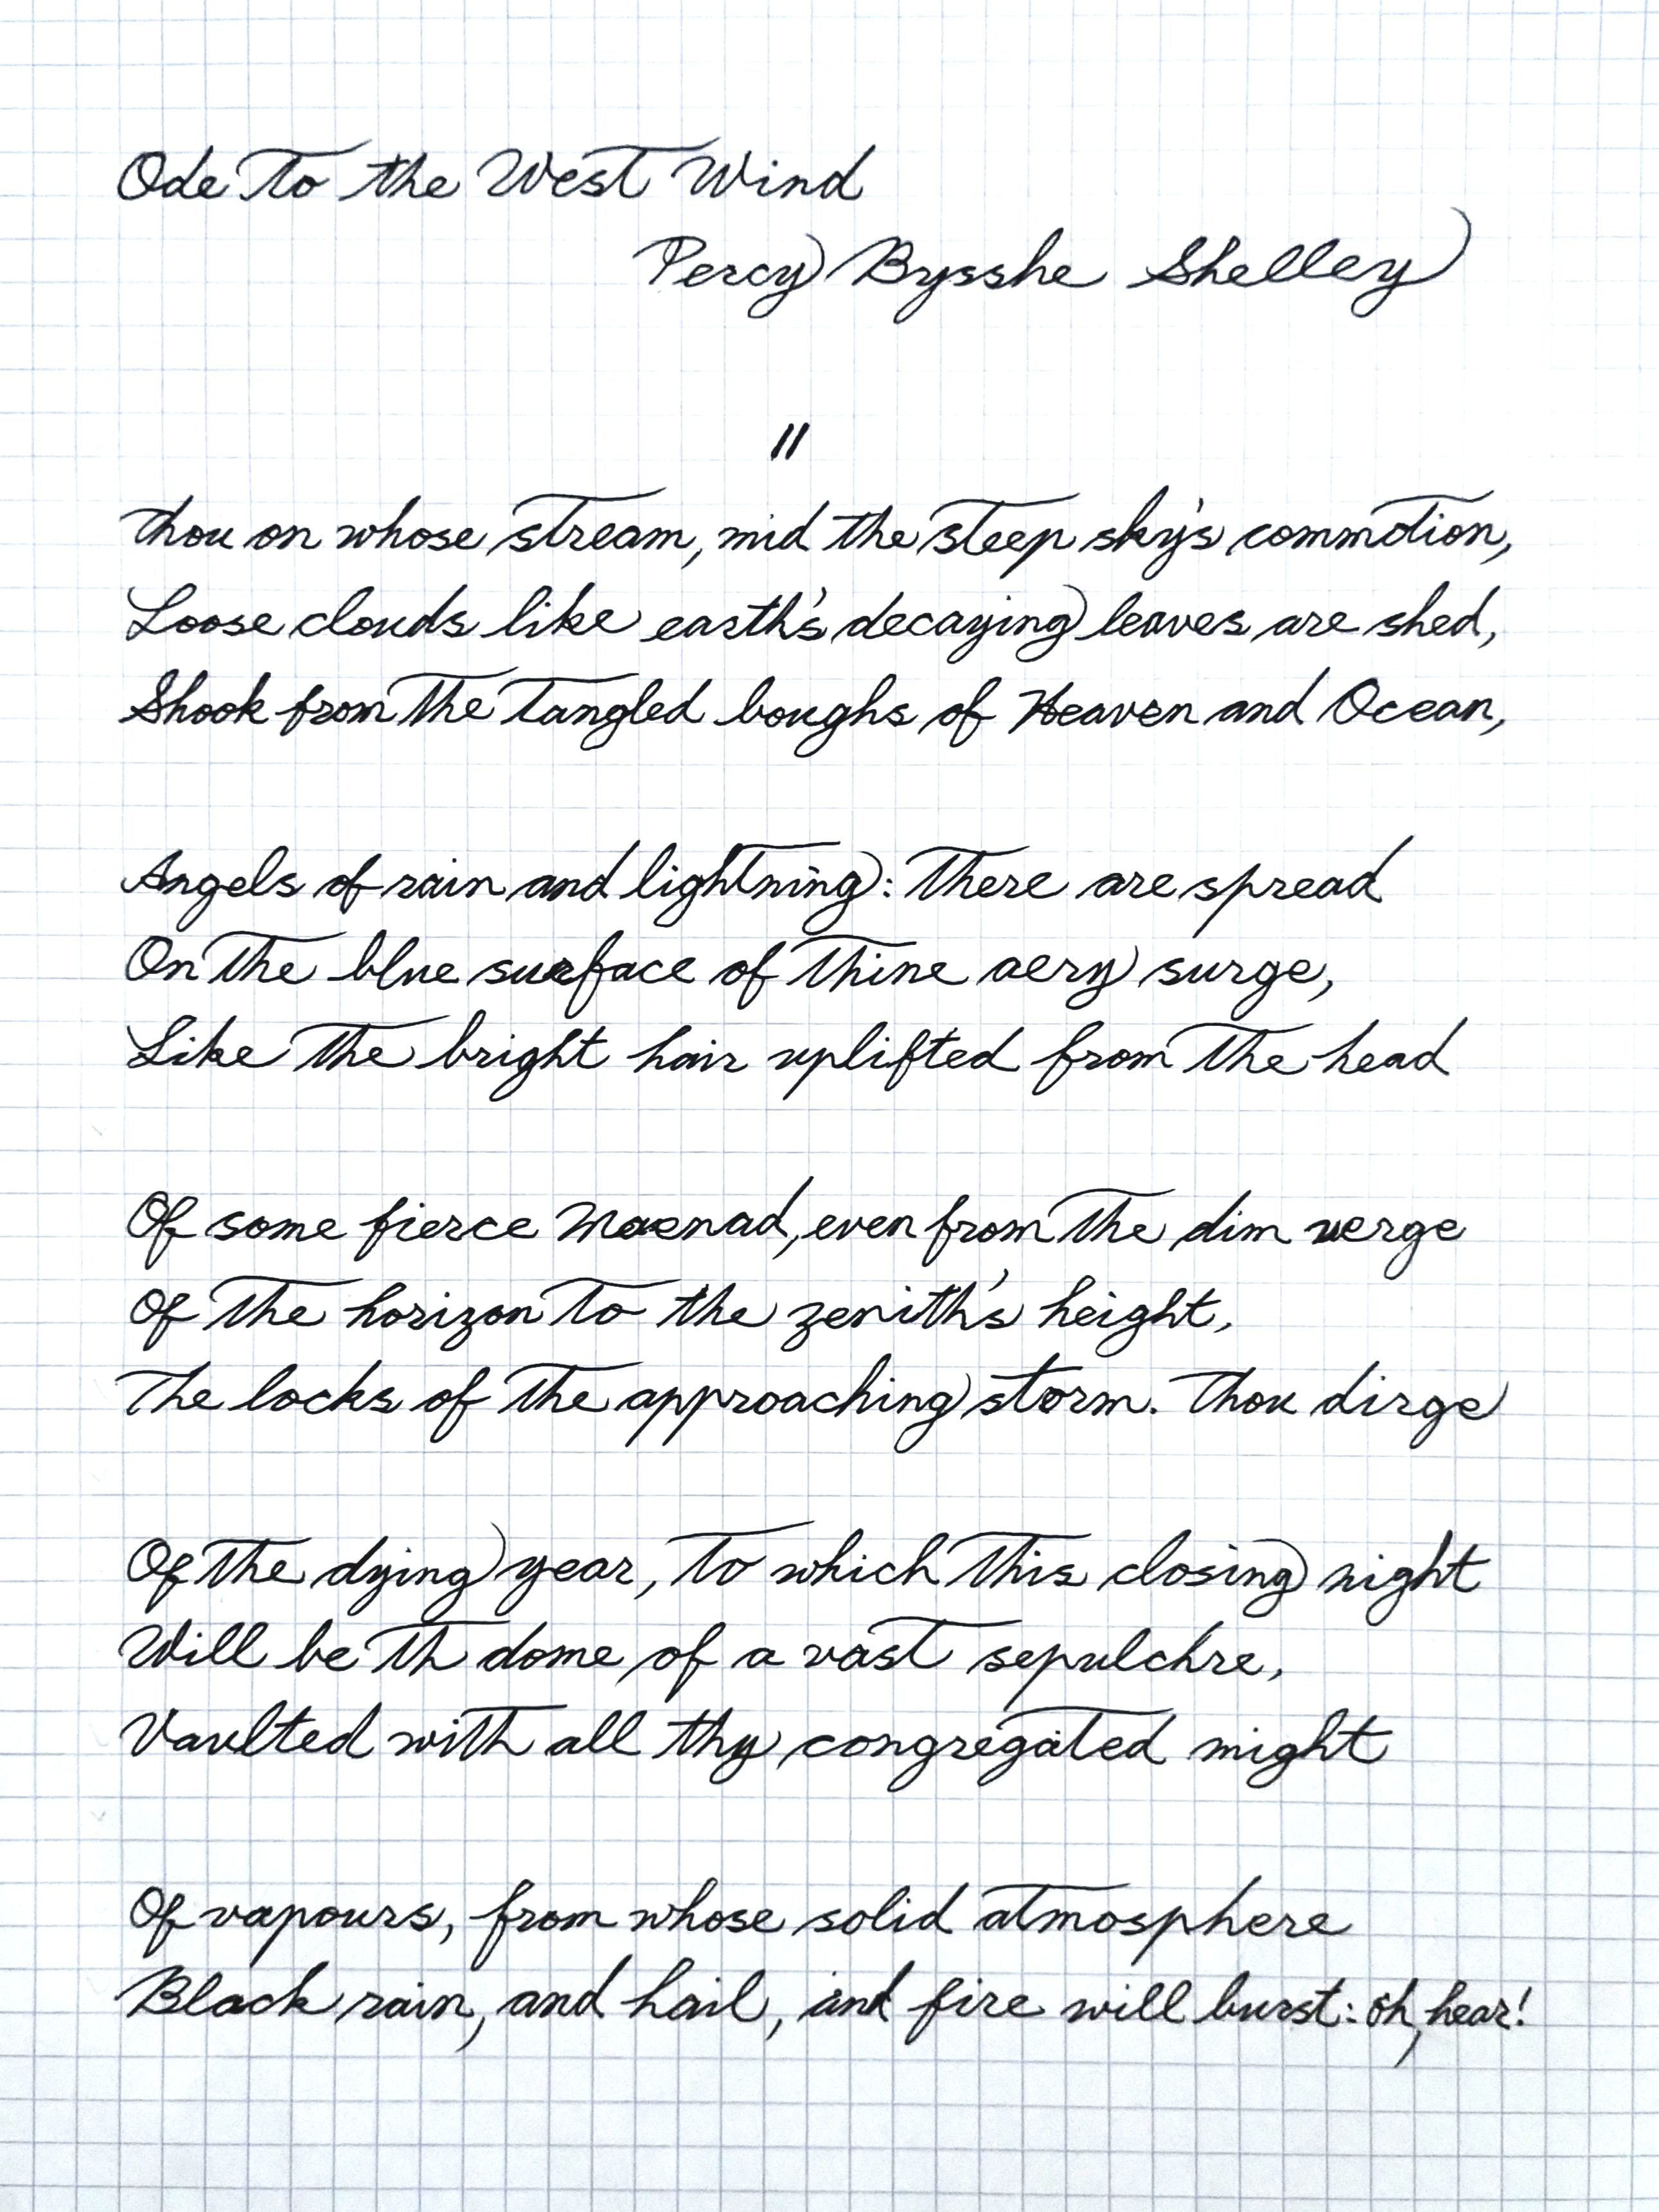 Ode To the West Wind
Percy Bysshe Shelley
II
Thou on whose stream, mid the steep sky's commotion,
Loose clouds like earth's decaying leaves are shed,
Shook from the tangled boughs of Heaven and Ocean,
Angels of rain and lightning: there are spread
On the blue surface of thine aery surge,
Like the bright hair uplifted from the head
Of some fierce Maenad, even from the dim verge
Of the horizon to the zenith's height,
The locks of the approaching storm. Thou dirge
Of the dying year, to which this closing night
Will be th dome of a vast sepulchre,
Vaulted with all thy congregated might
Of vapours, from whose solid atmosphere
Black rain, and hail, and fire will burst: oh, hear!